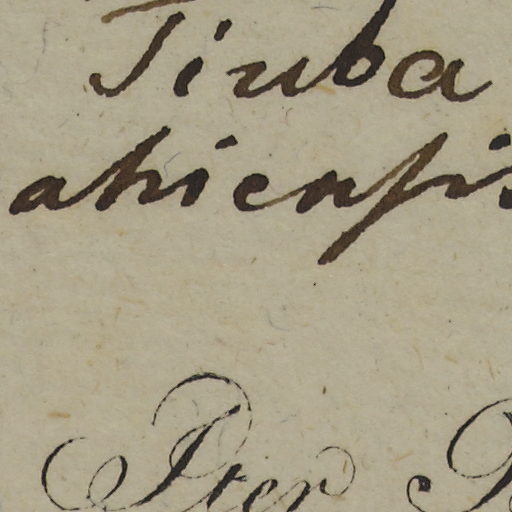 Tiuba
ahienſis
Iter